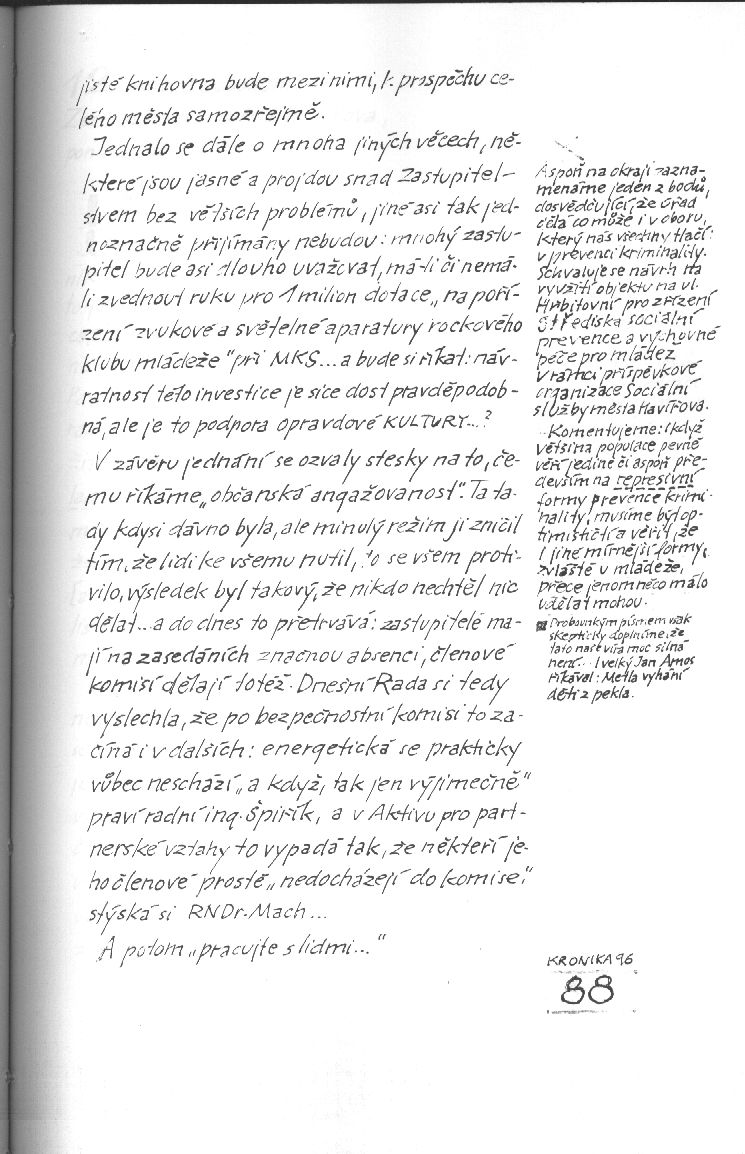 jistě knihovna bude mezi nimi, k prospěchu ce-
lého města samozřejmě.
Jednalo se dále o mnoha jiných věcech, ně-
které jsou jasné a projdou snad Zastupitel-
stvem bez větších problémů, jiné asi tak jed-
noznačně přijímány nebudou: mnohý zastu-
pitel bude asi dlouho uvažovat, má-li či nemá-
li zvednout ruku pro 1 milion dotace „na poří-
zení zvukové a světelné aparatury rockového
klubu mládeže" při MKS... a bude si říkat: náv-
ratnost této investice je sice dost pravděpodob-
ná, ale je to podpora opravdové KULTURY...?
V závěru jednání se ozvaly stesky na to, če-
mu říkáme „občanská angažovanost". Ta ta-
dy kdysi dávno byla, ale minulý režim ji zničil
tím, že lidi ke všemu nutil, to se všem proti-
vilo, výsledek byl takový, že nikdo nechtěl nic
dělat... a do dnes to přetrvává: zastupitelé ma-
jí na zasedáních značnou absenci, členové
komisí dělají totéž. Dnešní Rada si tedy
vyslechla, že po bezpečnostní komisi to za-
číná i v dalších: energetická se prakticky
vůbec neschází „a když, tak jen výjimečně"
praví radní ing. Špiřík, a v Aktivu pro part-
nerské vztahy to vypadá tak, že někteří je-
ho členové prostě „nedocházejí do komise."
stýská si RNDr. Mach...
A potom „pracujte s lidmi..."
Aspoň na okraji zazna-
menáme jeden z bodů,
dosvědčující, že úřad
dělá co může i v oboru,
který nás všechny tlačí:
v prevenci kriminality.
Schvaluje se návrh na
využití objektu na ul.
Hřbitovní pro zřízení
Střediska sociální
prevence a výchovné
péče pro mládež
v rámci příspěvkové
organizace Sociální
služby města Havířova.
Komentujeme: i když
většina populace pevně
věří jedině či aspoň pře-
devším na represivní
formy prevence krimi-
nality, musíme být op-
timističtí a věřit, že
i jiné mírnější formy,
zvláště u mládeže,
přece jenom něco málo
udělat mohou.
Drobounkým písmem však
skepticky doplníme, že
tato naše víra moc silná
není... I velký Jan Amos
říkával: Metla vyhání
děti z pekla.
KRONIKA 96
88